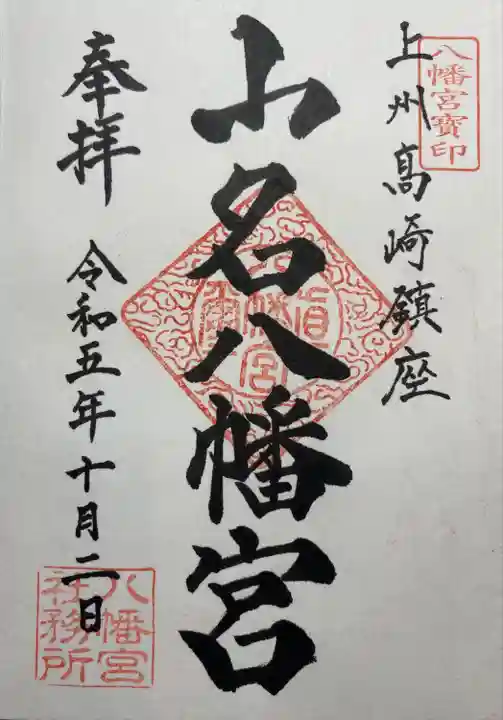 八幡宮寶印
上州高崎鎮座
山名八幡宮
奉拝
令和五年十月二日
八幡宮
社務所